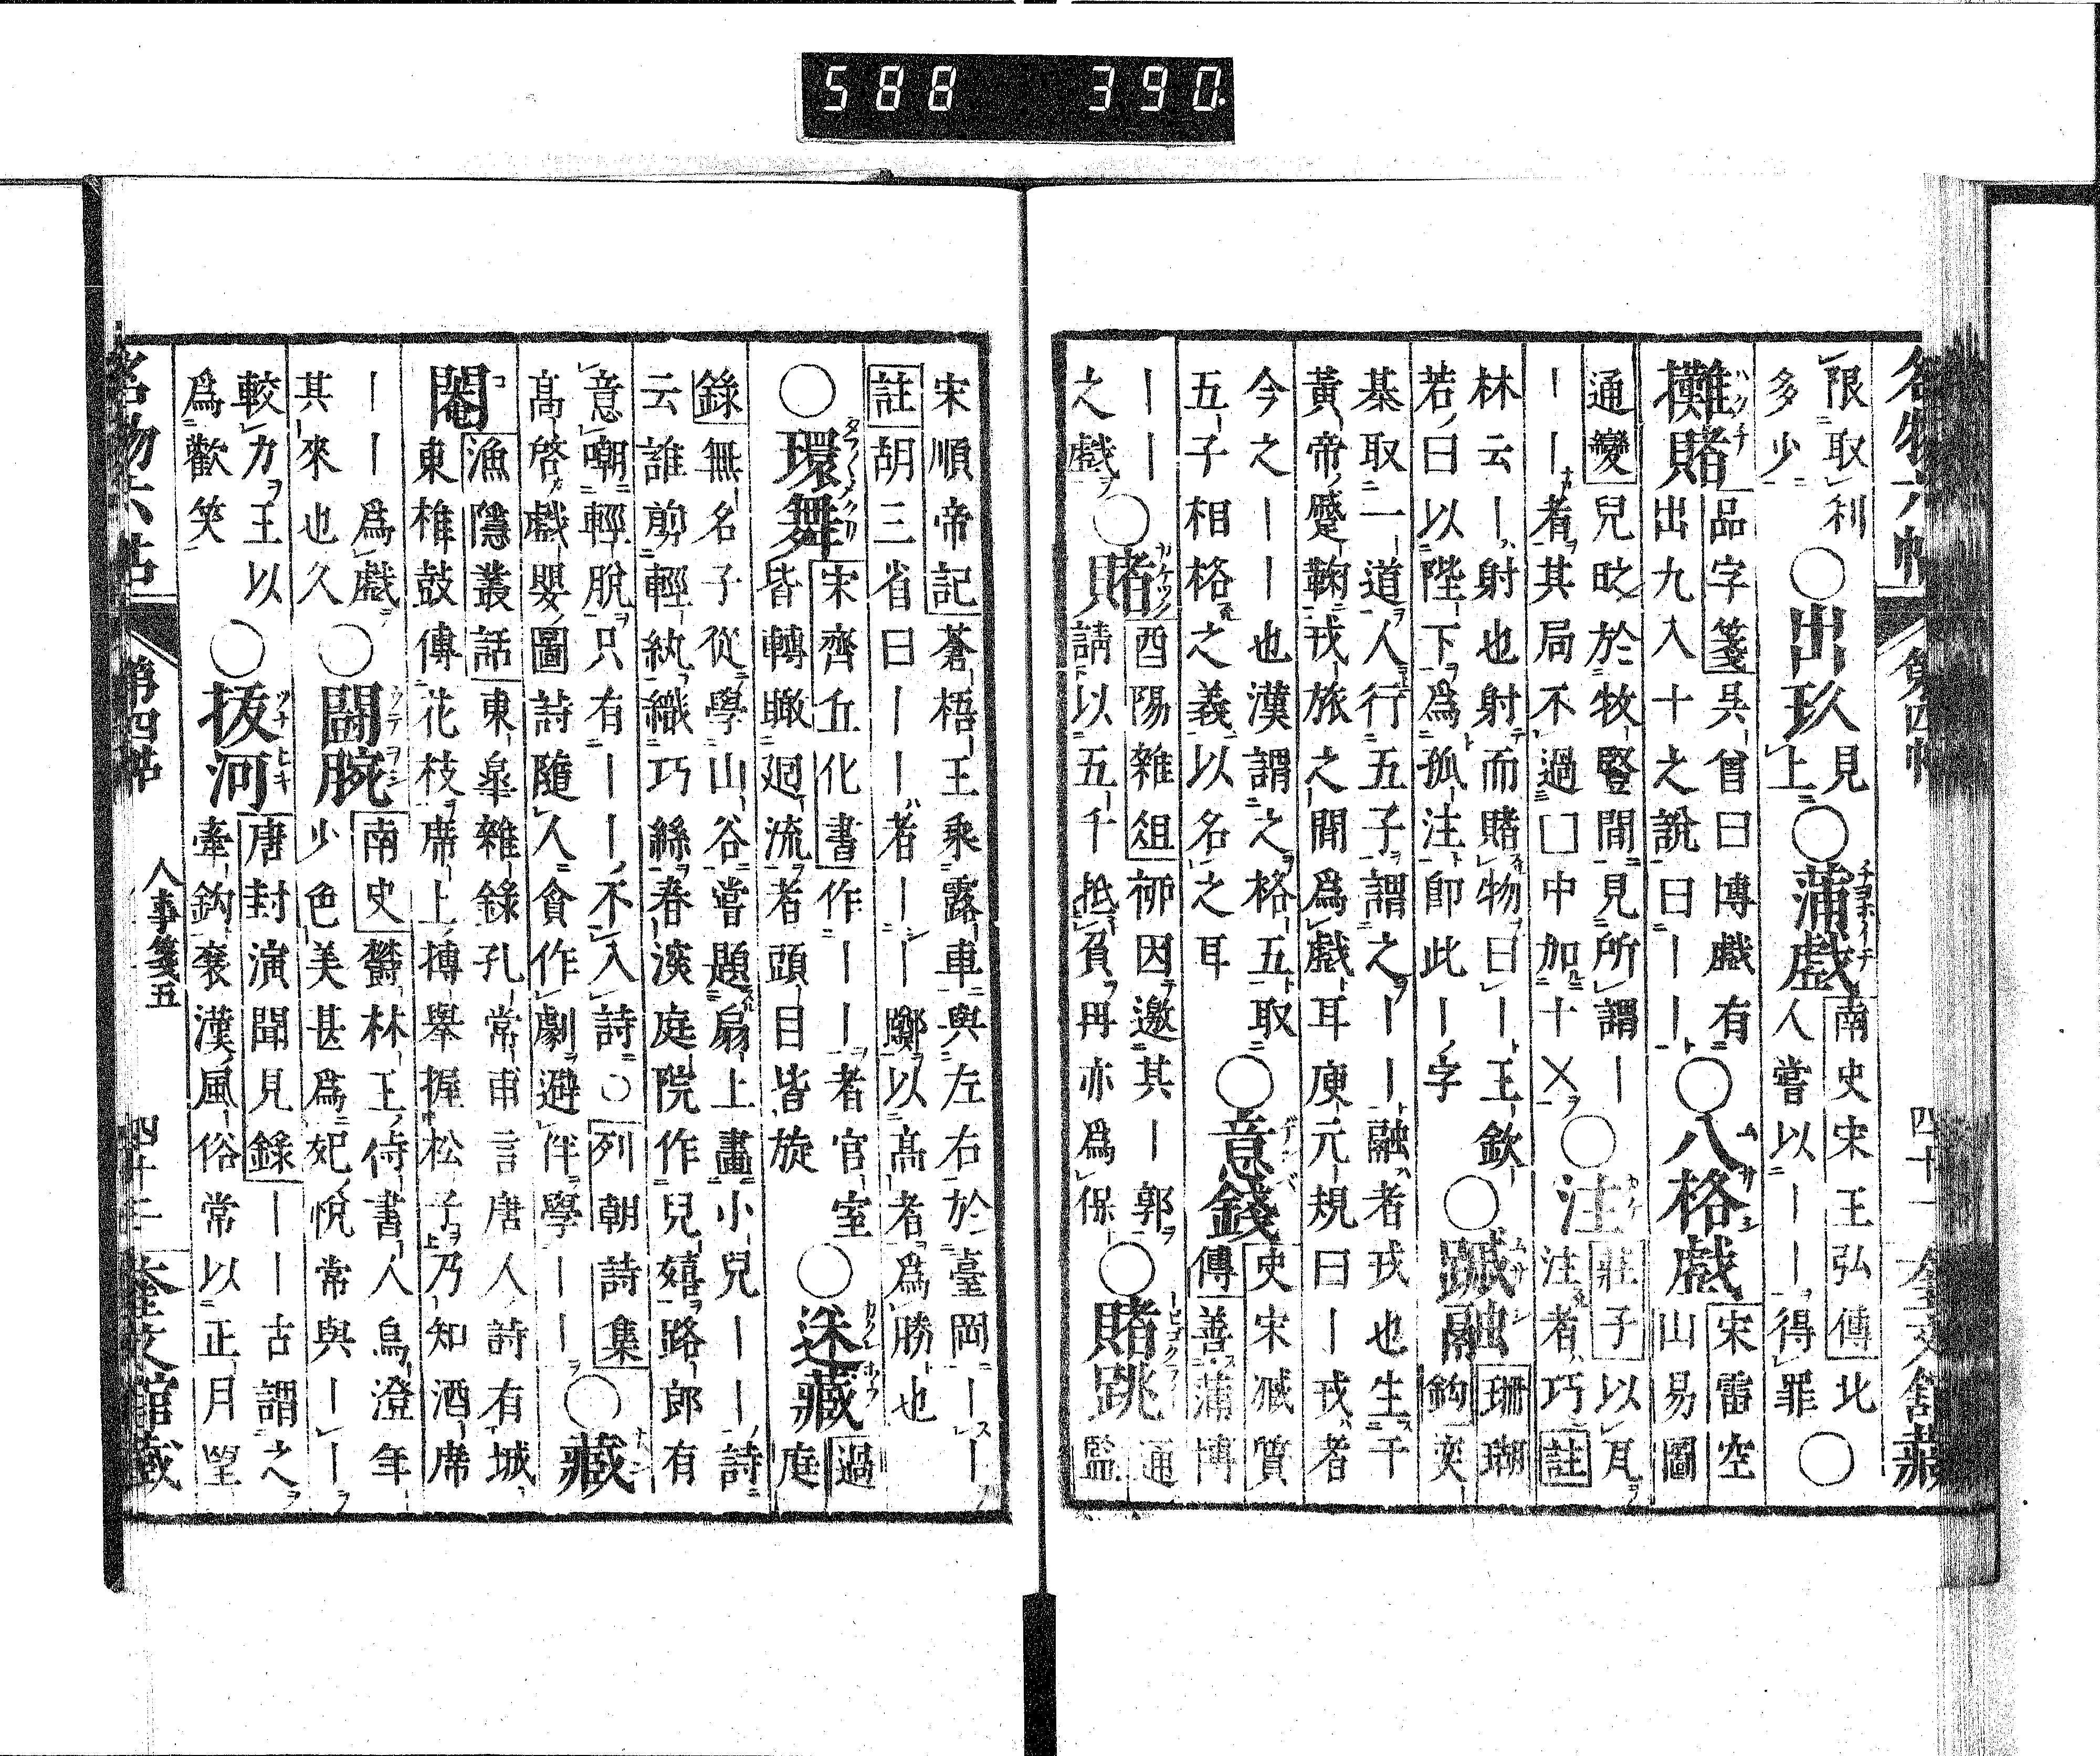 名物六帖 第四帖 四十一 奎文館藏
限取利
多少
○出玖
見
上
○蒲戲
南史宋王弘傳北
人嘗以――得罪
○
攤賭
品字箋吳曾曰博戲有
出九入十之說曰――
○八格戲
宋雷空
山易圖
通變兒旼於牧豎間見所謂―
――者其局不過囗中加十乂
○注
莊子以瓦
注者巧註
林云―射也射而賭物曰―王欽
若曰以陛下爲孤注卽此―字
○蹴融
珊瑚
鉤奕
棊取二道人行五子謂之――融者戎也生于
黃帝蹙鞠戎旅之間爲戲耳庾元規曰―戎者
今之――也漢謂之格五取
五子相格之義以名之耳
○意錢
史宋臧質
傳善蒲博
――
之戲
○賭
酉陽雜俎 因邀其―郭
請以五千抵負冉亦爲保
○賭跳
通
監
宋順帝記蒼梧王乘露車與左右於臺岡――
註胡三省曰――者――躑以高者爲勝也
○環舞
宋齊丘化書作――者官室
皆轉瞰迴流者頭目皆旋
○迷藏
過
庭
錄無名子從學山谷嘗題扇上畫小兒――詩
云誰剪輕紈織巧絲春深庭院作兒嬉路郎有
意嘲輕脫只有――不入詩○列朝詩集
高啓戲嬰圖詩隨人貪作劇避伴學――
○藏
鬮
漁隱叢話東皐雜錄孔常甫言唐人詩有城
東椎鼓傳花枝席上搏舉握松子乃知酒席
――爲戲
其來也久
○鬪腕
南史鬱林王侍書人烏澄年
少色美甚爲妃悅常與――
較力王以
爲歡笑
○拔河
唐封演聞見錄――古謂之
牽鉤襄漢風俗常以正月望
名物六帖 第四帖 人事箋五 四十一 奎文館藏
588 390